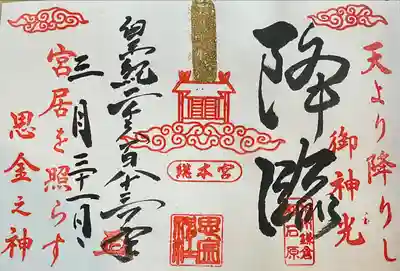 天より降りし
御神光
降臨
総本宮
皇紀二千六百八十三年
三月二十一日
宮居を照らす
思金之神